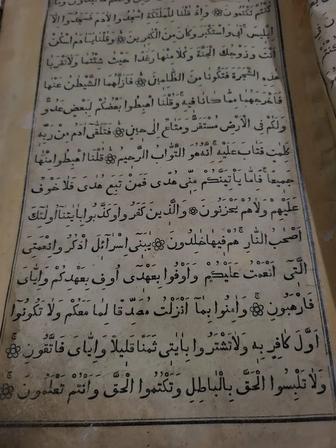 كنتم تكتمون ۞ واذ قلنا للملئكة اسجدوا لادم فسجدوا الا
ابليس ابى واستكبر وكان من الكفرين ۞ وقلنا يا ادم اسكن
انت وزوجك الجنة وكلا منها رغدا حيث شئتما ولا تقربا
هذه الشجرة فتكونا من الظالمين ۞ فازلهما الشيطن عنها
فاخرجهما مما كانا فيه وقلنا اهبطوا بعضكم لبعض عدو
ولكم فى الارض مستقر ومتاع الى حين ۞ فتلقى ادم من ربه
كلمت فتاب عليه انه هو التواب الرحيم ۞ قلنا اهبطوا منها
جميعا فاما ياتينكم منى هدى فمن تبع هدى فلا خوف
عليهم ولا هم يحزنون ۞ والذين كفروا وكذبوا باياتنا اولئك
اصحب النار هم فيها خلدون ۞ يبنى اسرائل اذكروا نعمتى
التى انعمت عليكم واوفوا بعهدى اوف بعهدكم واياى
فارهبون ۞ وامنوا بما انزلت مصدقا لما معكم ولا تكونوا
اول كافر به ولا تشتروا باياتى ثمنا قليلا واياى فاتقون ۞
ولا تلبسوا الحق بالباطل وتكتموا الحق وانتم تعلمون ۞